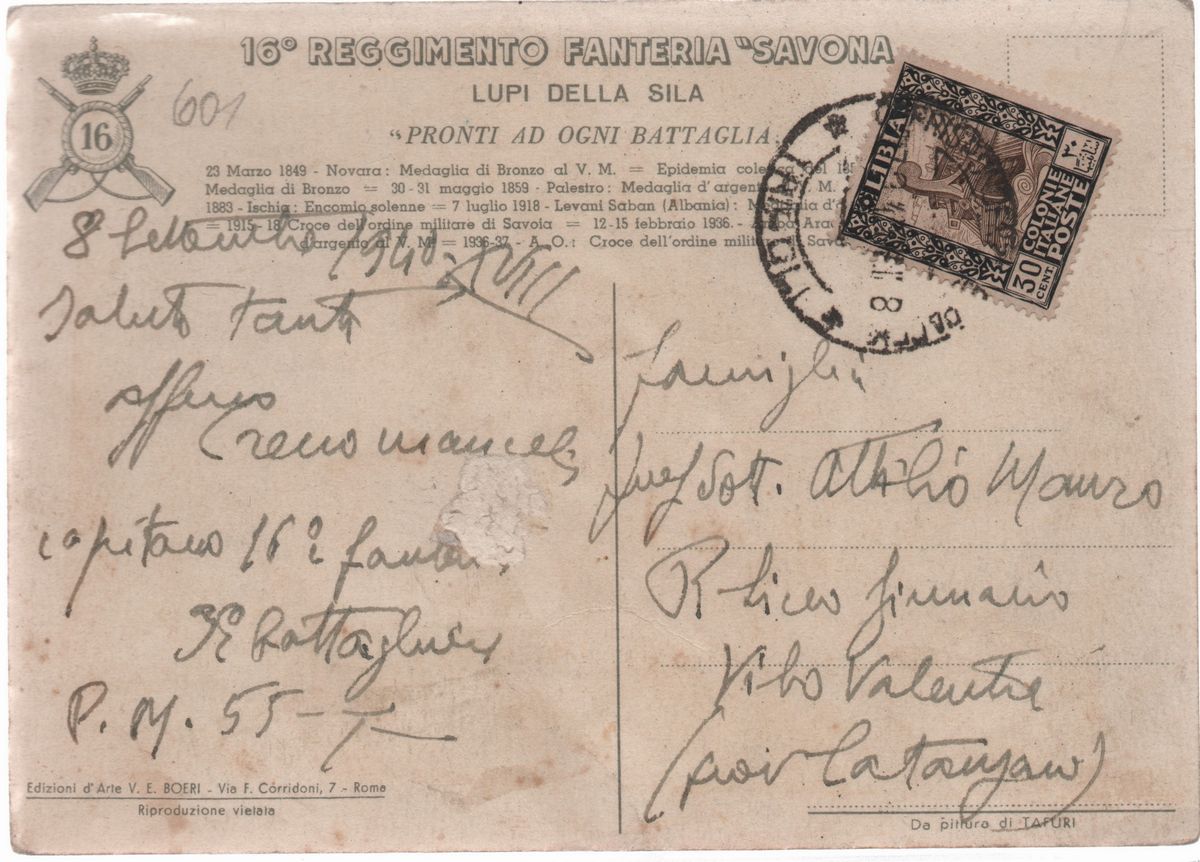 16° REGGIMENTO FANTERIA "SAVONA
LUPI DELLA SILA
"PRONTI AD OGNI BATTAGLIA
16
601
23 Marzo 1849 - Novara: Medaglia di Bronzo al V. M. = Epidemia del
Medaglia di Bronzo = 30-31 maggio 1859 - Palestro: Medaglia d'argen M.
1883 - Ischia: Encomio solenne = 7 luglio 1918 - Levani Saban (Albania):
= 1915-18 Croce dell'ordine militare di Savoia = 12-15 febbraio 1936. -
d'argento al V. M. = 1936-37 - A. O.: Croce dell'ordine milit Sav
LIBIA
COLONIE
ITALIANE
POSTE
30
CENT
8 Settembre 1940-XVIII
Saluti tanti
capitano 16° fanter
battaglione
P. M. 55-T
Famiglia
Prof Dott. Attilio Mauro
R. Liceo Ginnasio
Vibo Valentia
(Catanzaro)
Edizioni d'Arte V. E. BOERI - Via F. Corridoni, 7 - Roma
Riproduzione vietata
Da pittura di TAFURI